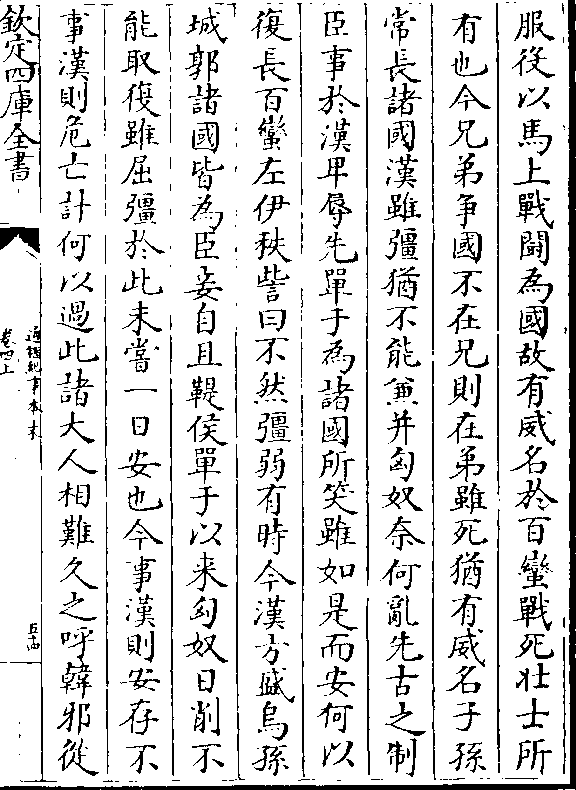 服役以馬上戰鬬為國故有威名於百蠻戰死壯士所
有也今兄弟爭國不在兄則在弟雖死猶有威名子孫
常長諸國漢雖彊猶不能兼并匈奴奈何亂先古之制
臣事於漢卑辱先單于為諸國所笑雖如是而安何以
復長百蠻左伊秩訾曰不然彊弱有時今漢方盛烏孫
城郭諸國皆為臣妾自且鞮侯單于以来匈奴日削不
能取復雖屈彊於此未嘗一日安也今事漢則安存不
事漢則危亡計何以過此諸大人相難久之呼韓邪從
欽定四庫全書
通鑑紀事本末
卷四上
五十四